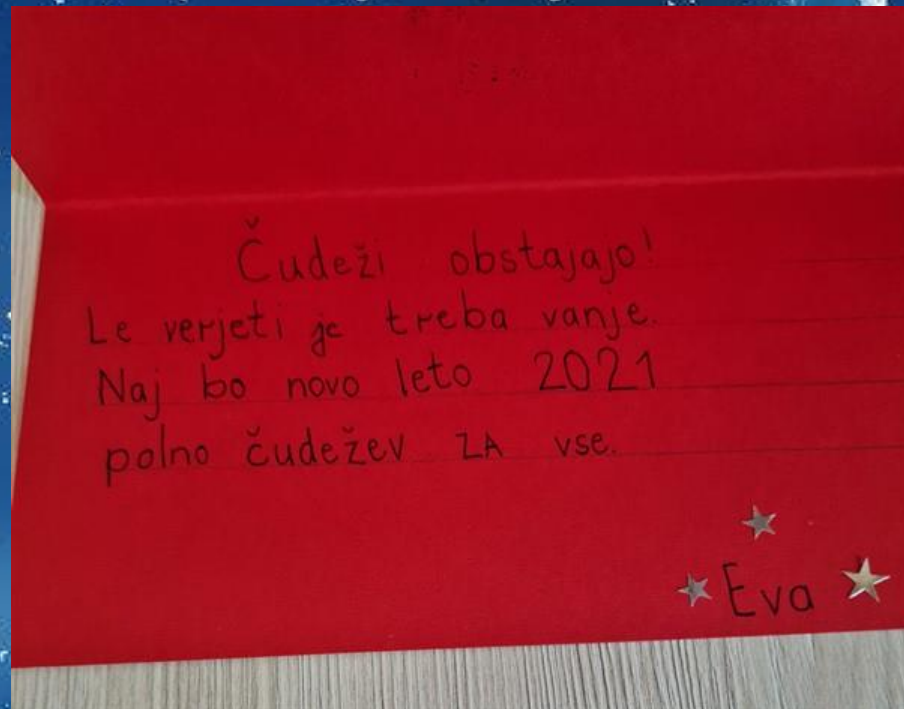 Čudeži obstajajo!
Le verjeti je treba vanje.
Naj bo novo leto 2021
polno čudežev ZA vse.
Eva